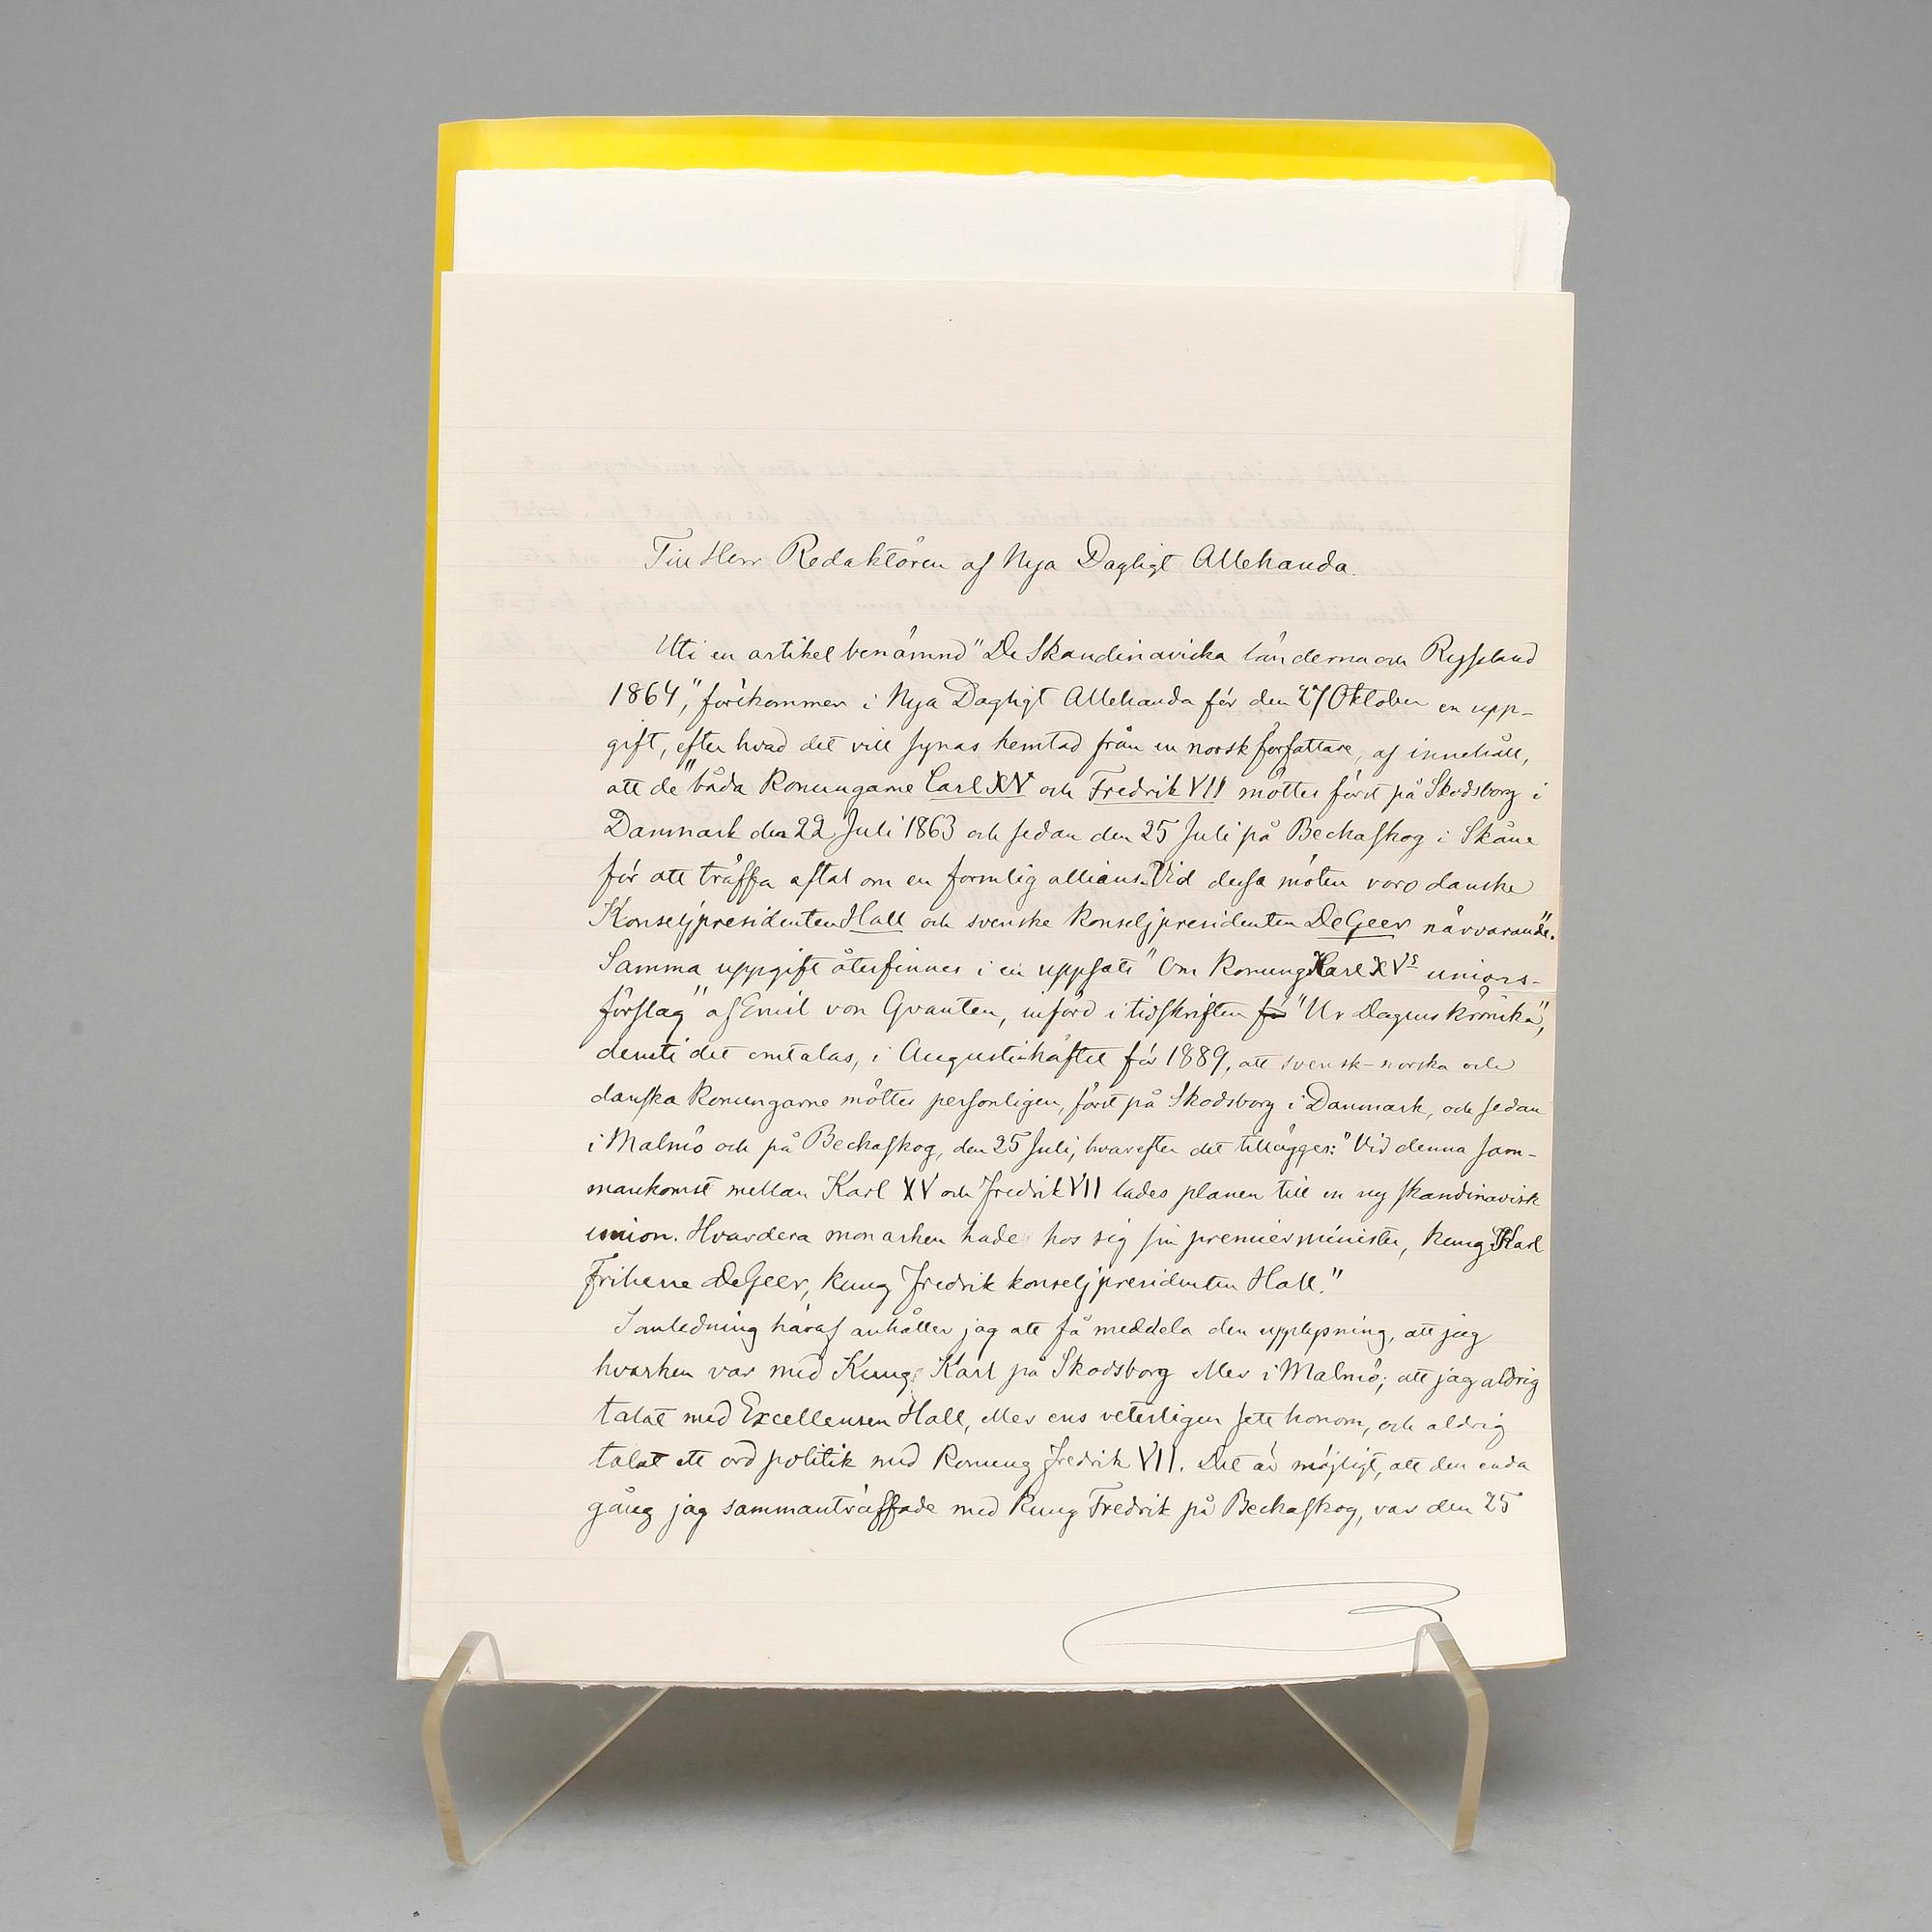 Till Herr Redaktören af Nya Dagligt Allehanda.
Uti en artikel benämnd "De Skandinaviska länderna och Ryssland
1864," förekommer i Nya Dagligt Allehanda för den 27 Oktober en upp-
gift, efter hvad det vill synas hemtad från en norsk författare, af innehåll,
att de "båda Konungarne Carl XV och Fredrik VII möttes först på Skodsborg i
Danmark den 22 Juli 1863 och sedan den 25 Juli på Beckaskog i Skåne
för att träffa aftal om en formlig allians. Vid dessa möten voro danske
Konseljpresidenten Hall och svenske Konseljpresidenten De Geer närvarande".
Samma uppgift återfinnes i en uppsats "Om Konung Karl XVs unions-
förslag" af Emil von Qvanten, införd i tidskriften för "Ur Dagens Krönika",
deruti det omtalas, i Augustihäftet för 1889, att svensk-norska och
danska Konungarne möttes personligen, först på Skodsborg i Danmark, och sedan
i Malmö och på Beckaskog, den 25 Juli, hvarefter det tillägges: "Vid denna sam-
mankomst mellan Karl XV och Fredrik VII lades planen till en ny skandinavisk
union. Hvardera monarken hade hos sig sin premierminister, kung Karl
Friherre De Geer, kung Fredrik konseljpresidenten Hall."
I anledning häraf anhåller jag att få meddela den upplysning, att jag
hvarken var med Kung Karl på Skodsborg eller i Malmö; att jag aldrig
talat med Excellensen Hall, eller ens veterligen sett honom, och aldrig
talat ett ord politik med Konung Fredrik VII. Det är möjligt, att den enda
gång jag sammanträffade med Kung Fredrik på Beckaskog, var den 25